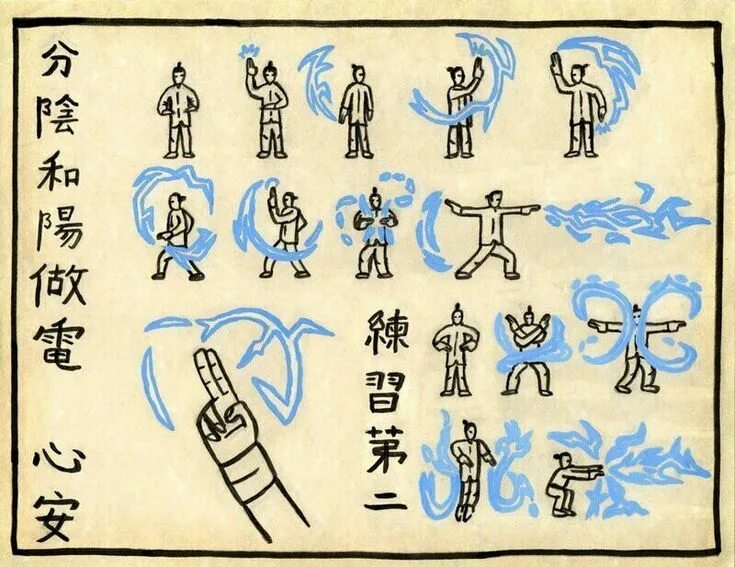 分陰和陽做電　心安
練習第二